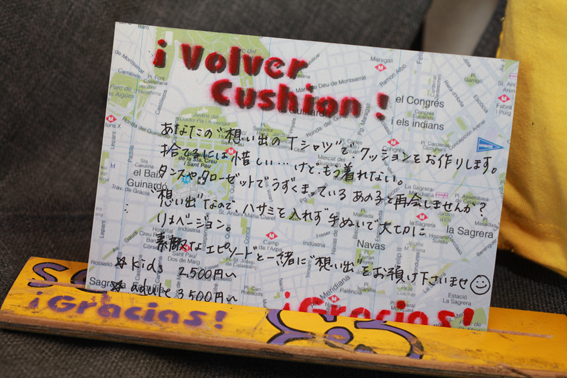 ¡ Volver
Cushion !
あなたの"想い出のTシャツ"で、クッションをお作りします。
捨てるには惜しい…けど、もう着れない。
タンスやクローゼットでうずくまっている あの子と再会しませんか？
"想い出"なので、ハサミを入れず手ぬいで大切に
リメバージョン。
素敵なエピソードと一緒に"想い出"をお預け下さいませ☺
☆kids 2,500円〜
☆adult 3,500円〜
¡Gracias!
¡Gracias!
el Congrés
i els indians
Navas
la Sagrera
la Sagrera
Estació
La Sagrera
el Baix
Guinardó